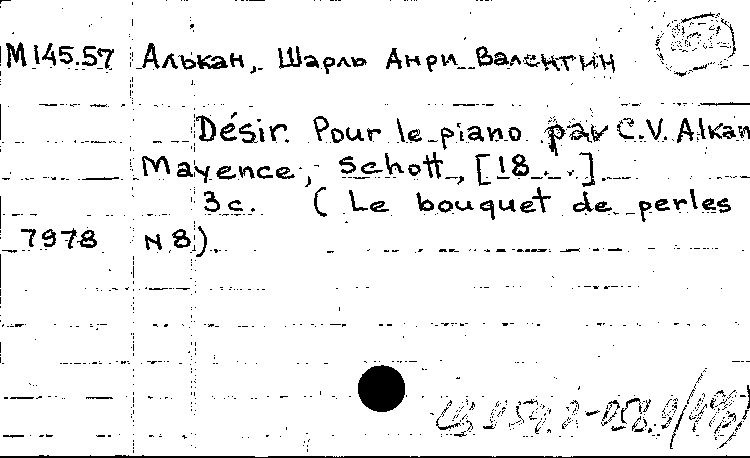 М 145.57 Алькан, Шарль Анри Валентин
Désir. Pour le piano par C.V. Alkan
Mayence, Schott, [18...].
3 c. ( Le bouquet de perles
7978 N 8)